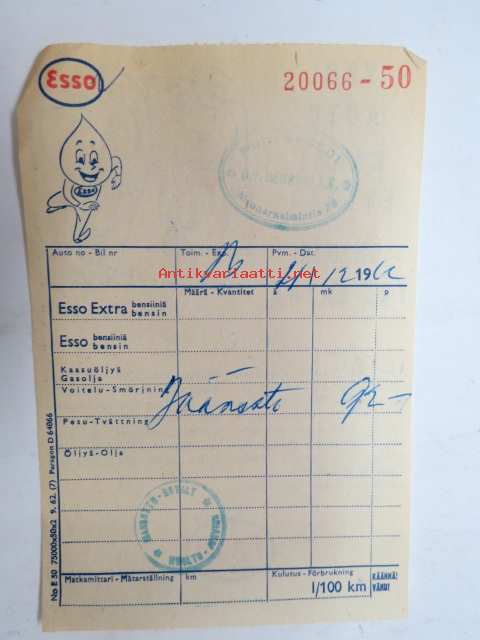 Esso
20066-50
Esso
Auto no - Bil nr Toim. - Exp. Pvm. - Dat.
Antiksariaatti.net
19
Määrä - Kvantitet a mk p
Esso Extra bensiiniä bensin
Esso bensiiniä bensin
Kaasuöljyä
Gasolja
Voitelu-Smörjning
Jäänsato 92-
Pesu-Tvättning
Öljyä-Olja
Matkamittari - Mätarställning km Kulutus - Förbrukning
l/100 km KÄÄNNÄ! VÄND!
No E 50 75000x50x2 9. 62. (7) Paragon D 64066